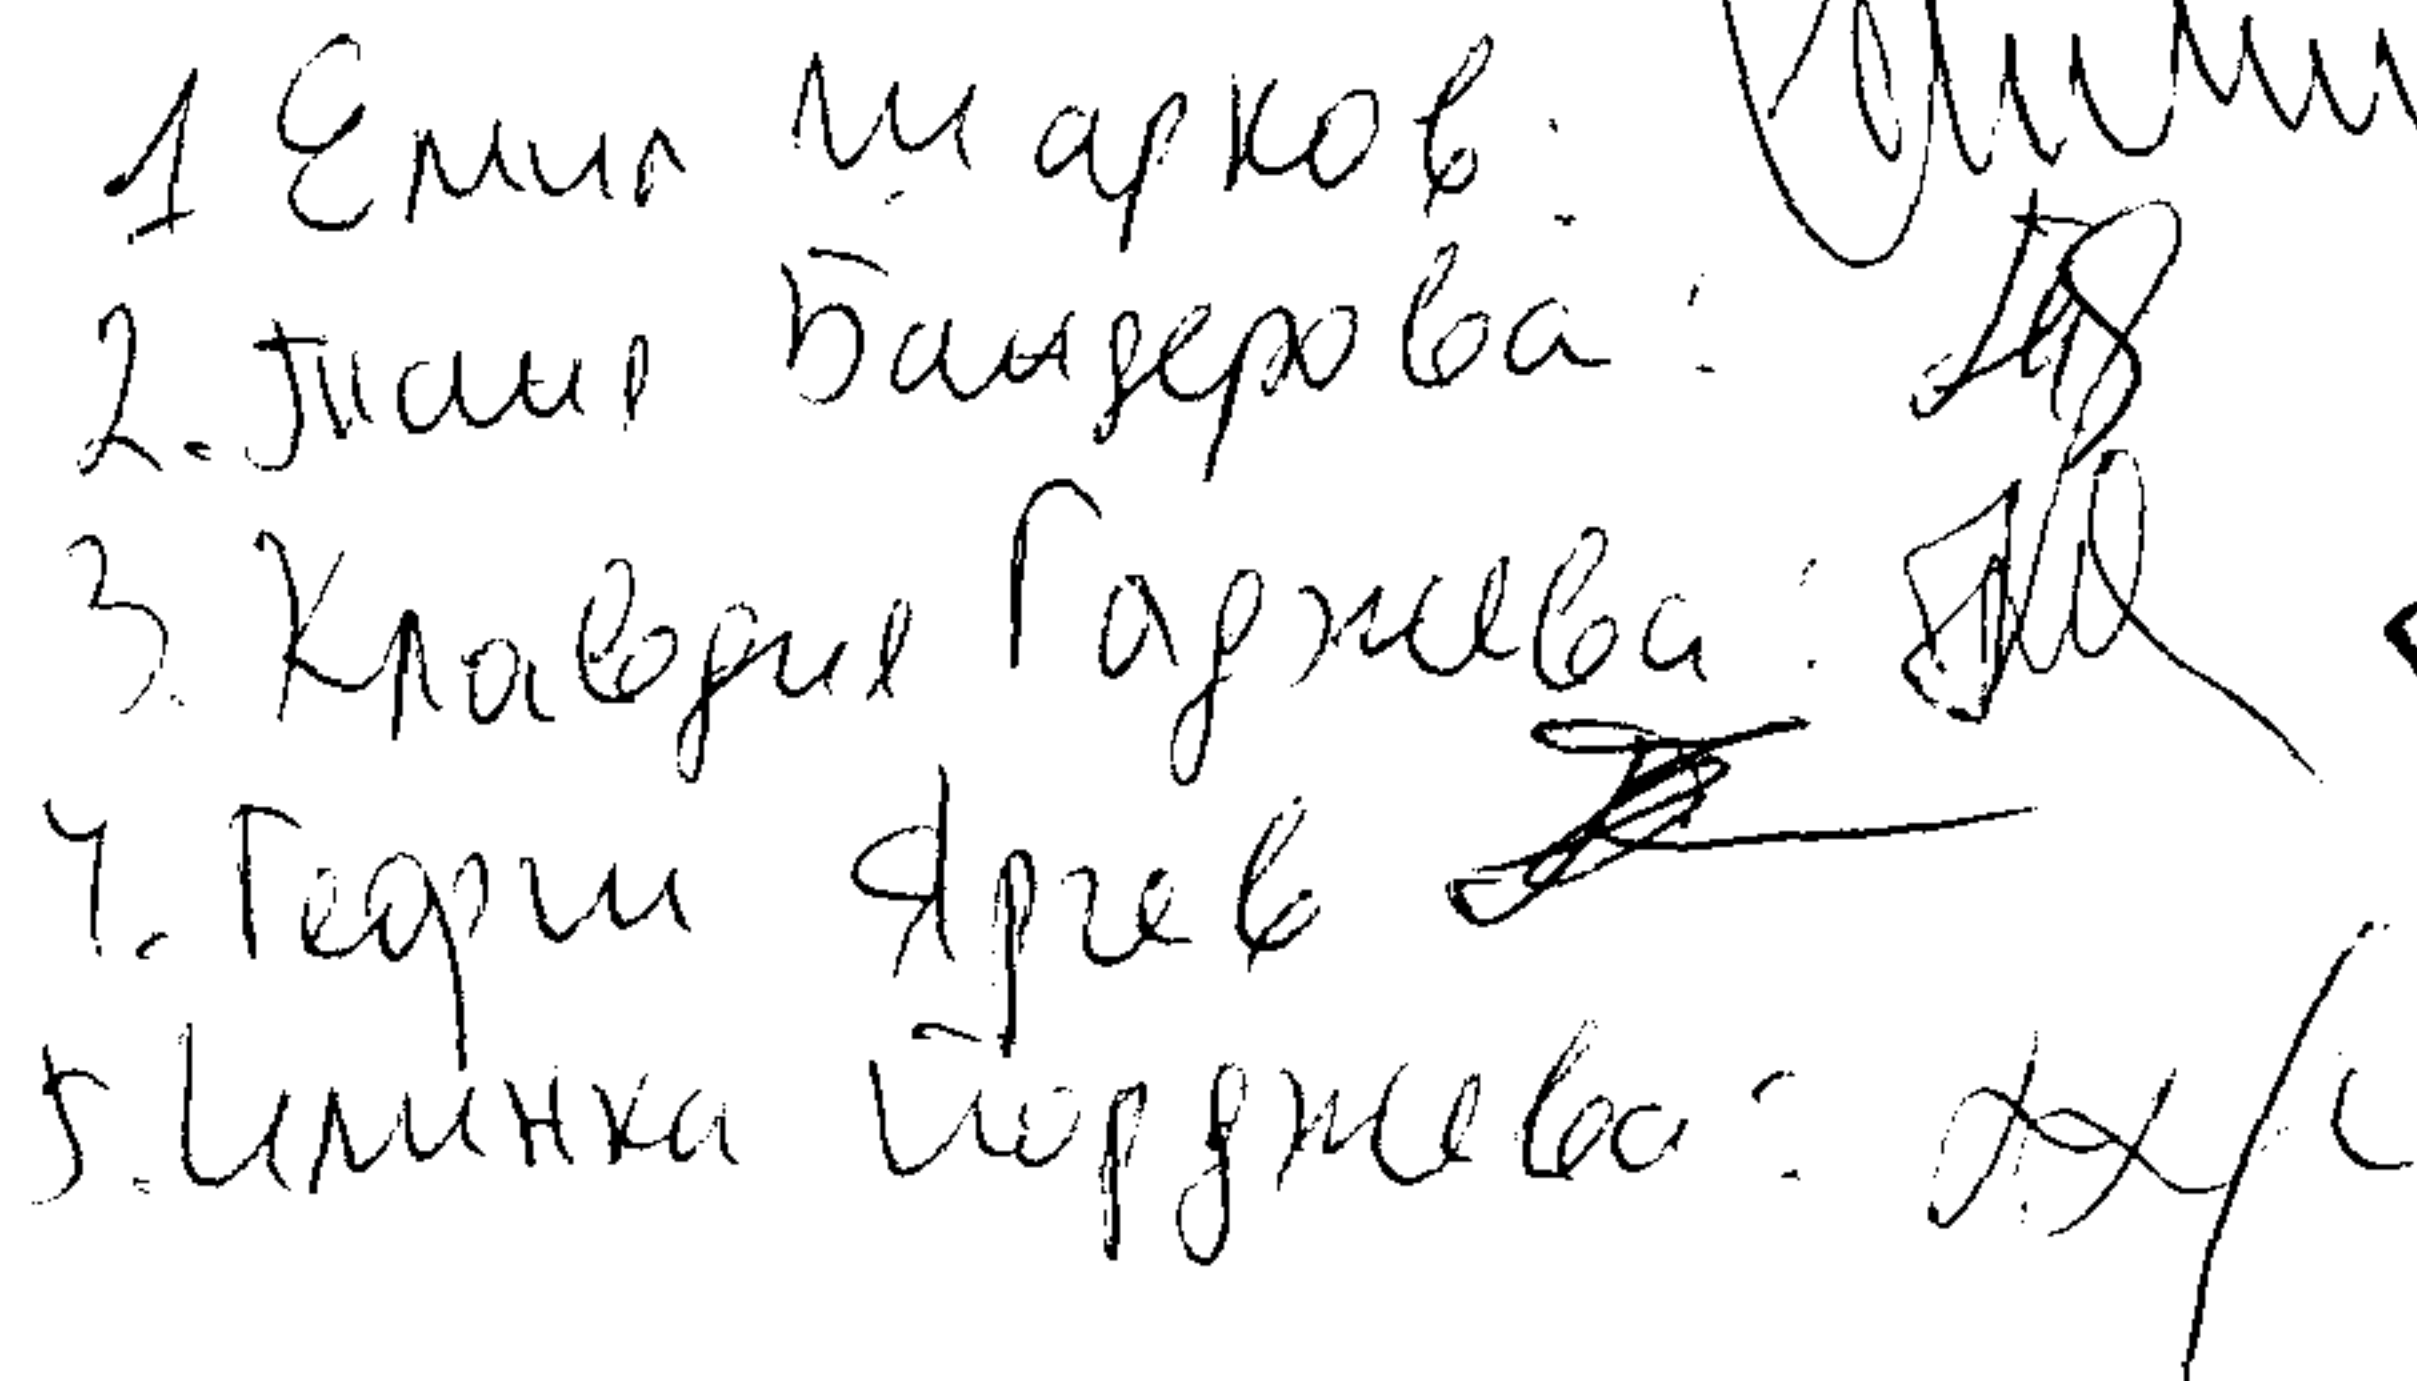 1 Емил Марков:
2. Таня Бандерова:
3. Клавдия Гаджева:
4. Георги Яргев
5. Илинка Йорджева: